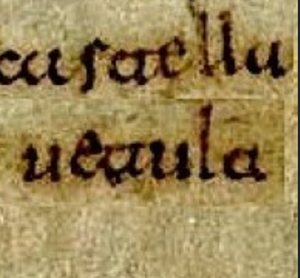 castellu
uetula